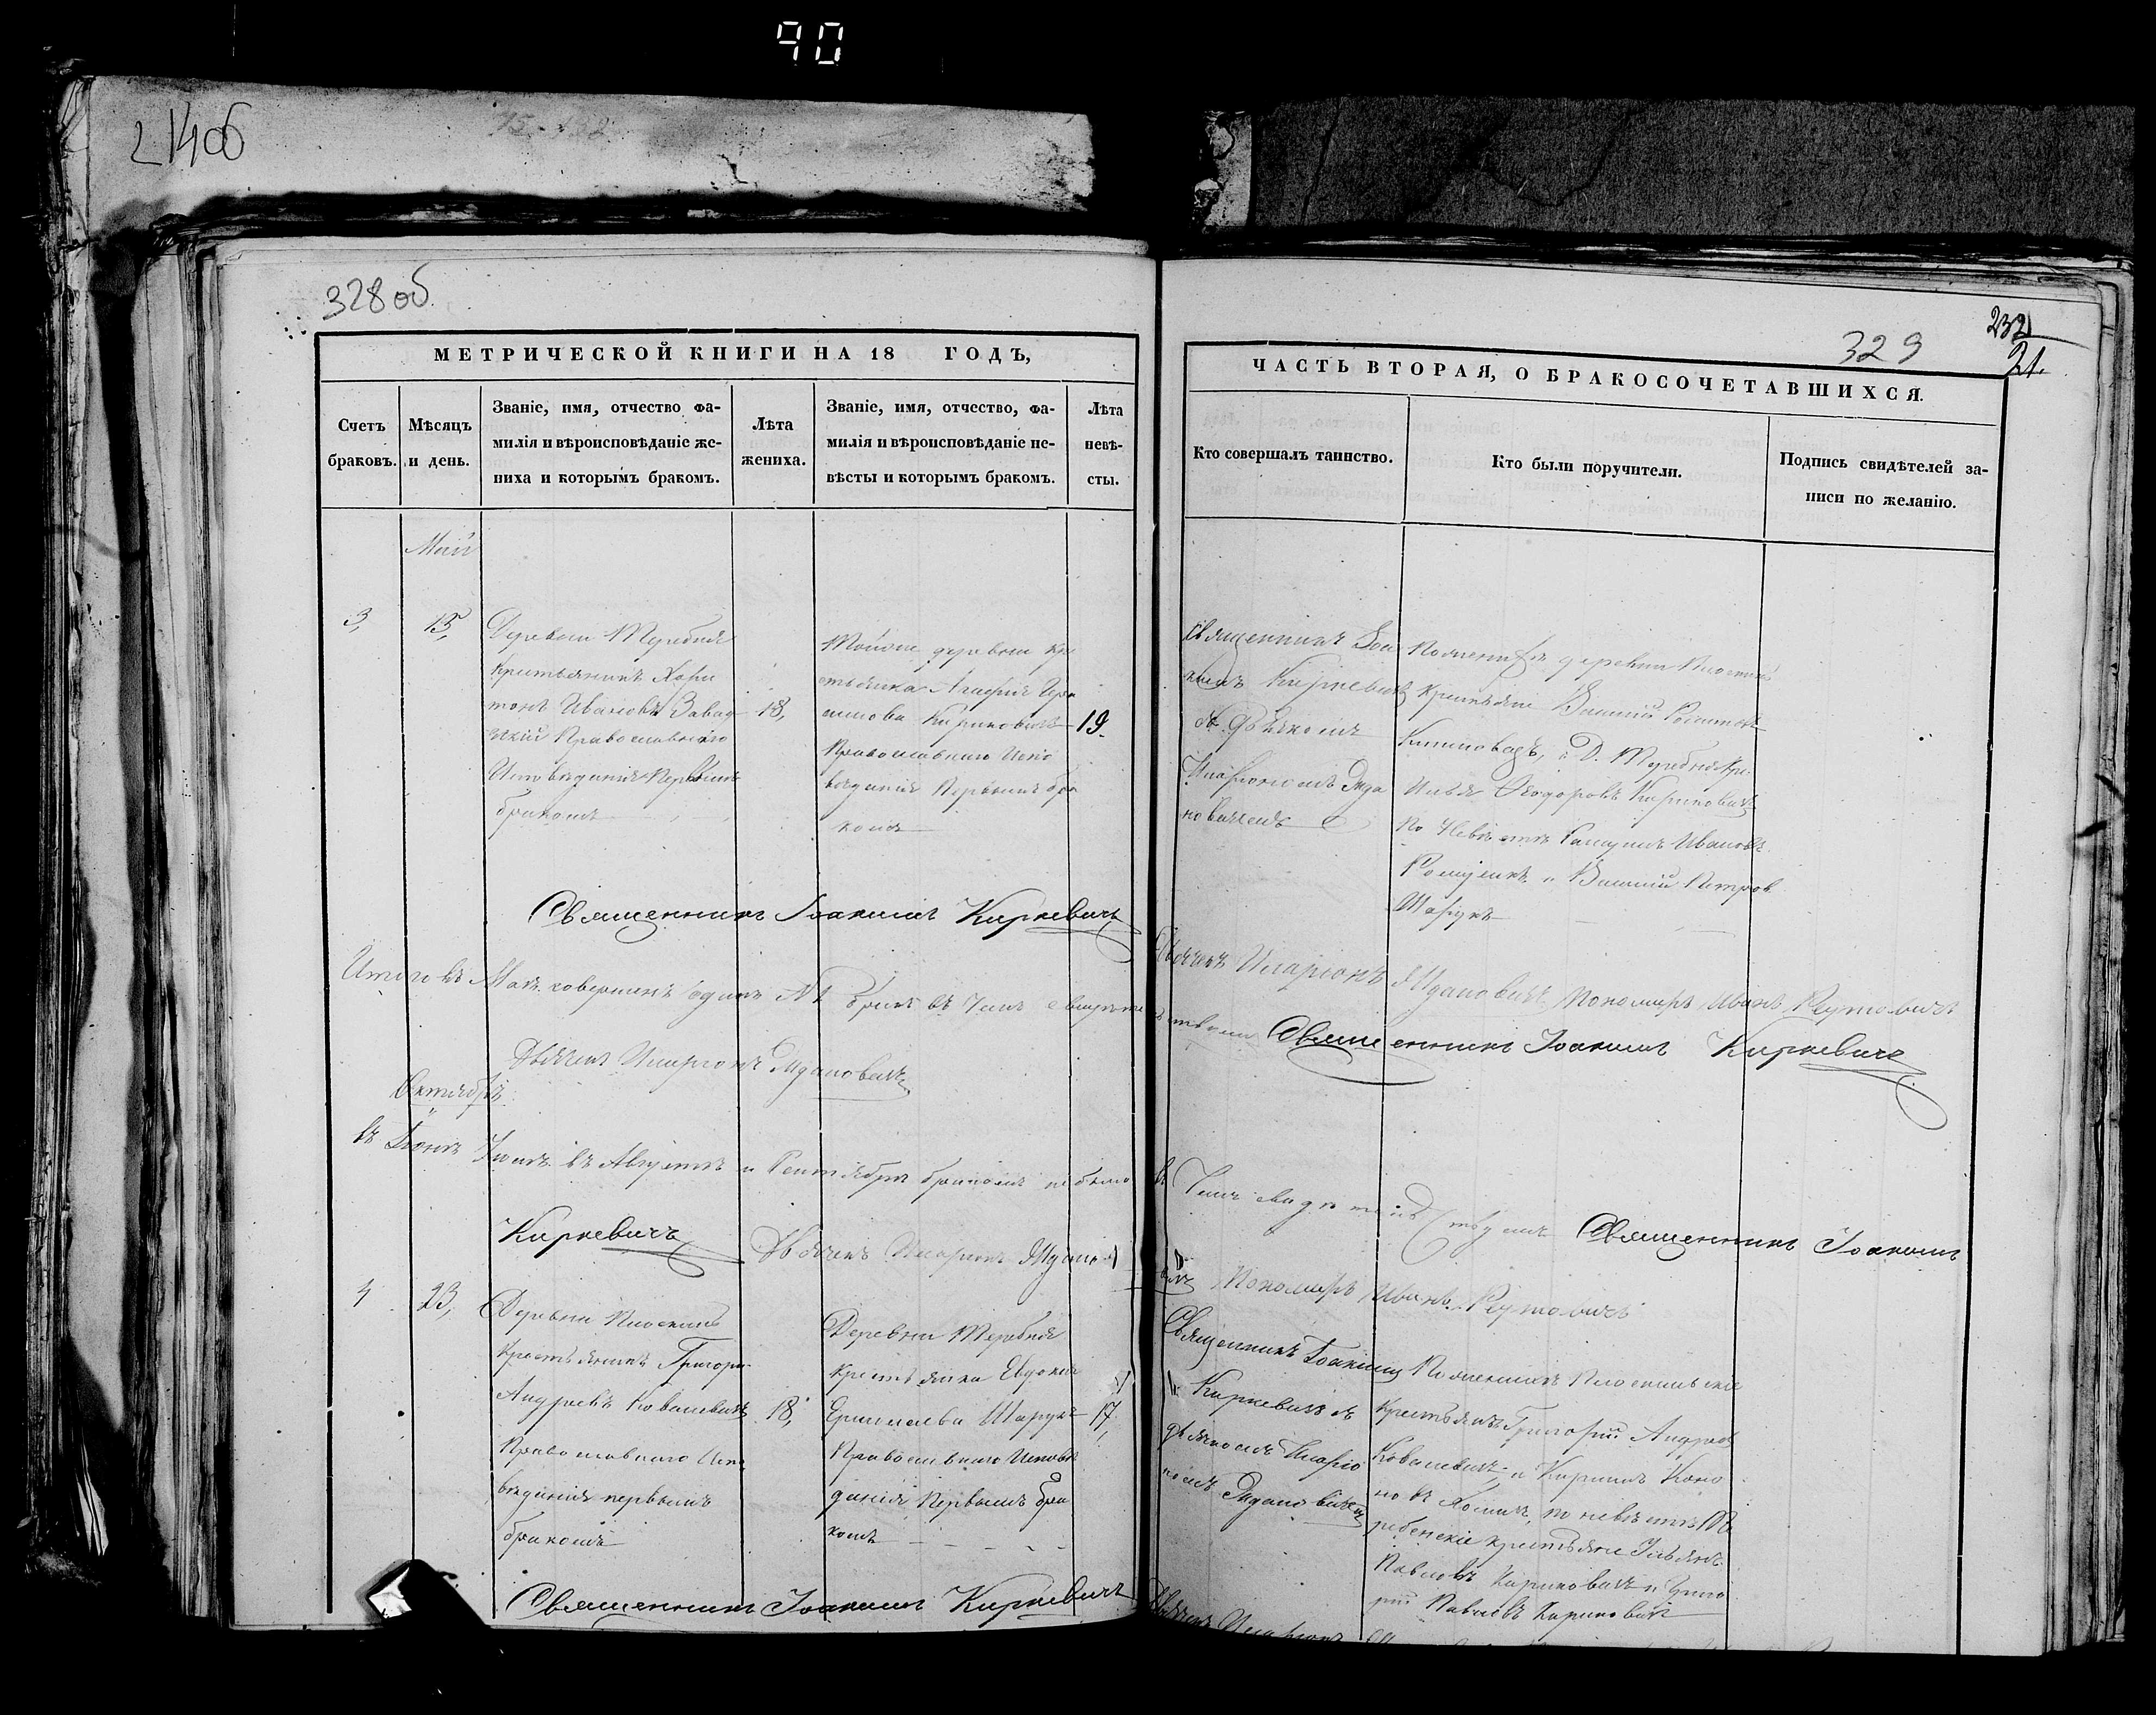 90
214об
328 об.
МЕТРИЧЕСКОЙ КНИГИ НА 18 ГОДЪ,
Счетъ браковъ.
Мѣсяцъ и день.
Званіе, имя, отчество фа-
милія и вѣроисповѣданіе же-
ниха и которымъ бракомъ.
Лѣта
жениха.
Званіе, имя, отчество, фа-
милія и вѣроисповѣданіе не-
вѣсты и которымъ бракомъ.
Лѣта
невѣ-
сты.
Май
3,
15,
Деревни Теребня
Крестьянинъ Хари
тонъ Ивановъ Завад
скій Православнаго
Исповѣданія Первымъ
бракомъ
18,
Тойже деревни кре
стьянка Агафія
Кириковичъ
Православнаго Испо
вѣданія Первымъ бра
комъ
19.
Священникъ Іоакимъ Киркевичъ
Итого въ Маѣ совершенъ одинъ №1 бракъ въ чемъ свидѣте
Дьячекъ Иларіонъ Ждановичъ
Октябрь
въ Іюнѣ Іюлѣ въ Августѣ и Сентябрѣ браковъ не было
Киркевичъ
Дьячекъ Иларіонъ Ждано
4
23,
Деревни Плоскинь
Крестьянинъ Григорій
Андреевъ Ковалевичъ
Православнаго Испо
вѣданія первымъ
бракомъ
18,
Деревни Теребня
крестьянка Евдокія
Ермолаева Шарукъ
Православнаго Исповѣ
данія Первымъ бра
комъ
17,
Священникъ Іоакимъ Киркевичъ
329
232
21.
ЧАСТЬ ВТОРАЯ, О БРАКОСОЧЕТАВШИХСЯ.
Кто совершалъ таинство.
Кто были поручители.
Подпись свидѣтелей за-
писи по желанію.
Священникъ Іоа
кимъ Киркевичъ
съ Дьячкомъ
Иларіономъ Жда
новичемъ
По женихѣ деревни
Крестьяне Василій
и Д. Теребня Кр.
Илья Ѳеодоровъ Кириковичъ
По Невѣстѣ Ивановъ
и Василій Петровъ
Шарукъ
Дьячекъ Иларіонъ Ждановичъ Пономарь Иванъ Реутовичъ
ствуемъ Священникъ Іоакимъ Киркевичъ
въ Чемъ свидѣтельствуемъ Священникъ Іоакимъ
вичъ Пономарь Иванъ Реутовичъ
Священникъ Іоакимъ
Киркевичъ съ
дьячкомъ Иларіо
номъ Ждановичемъ
По женихѣ Плоскинскіе
Крестьяне Григорій Андреев
Ковалевичъ и Кириллъ Коно
новъ по невѣстѣ Те
ребенскіе крестьяне Ульянъ
Павловъ Кириковичъ и Григо
рій Павловъ Кириковичъ
Дьячекъ Иларіонъ